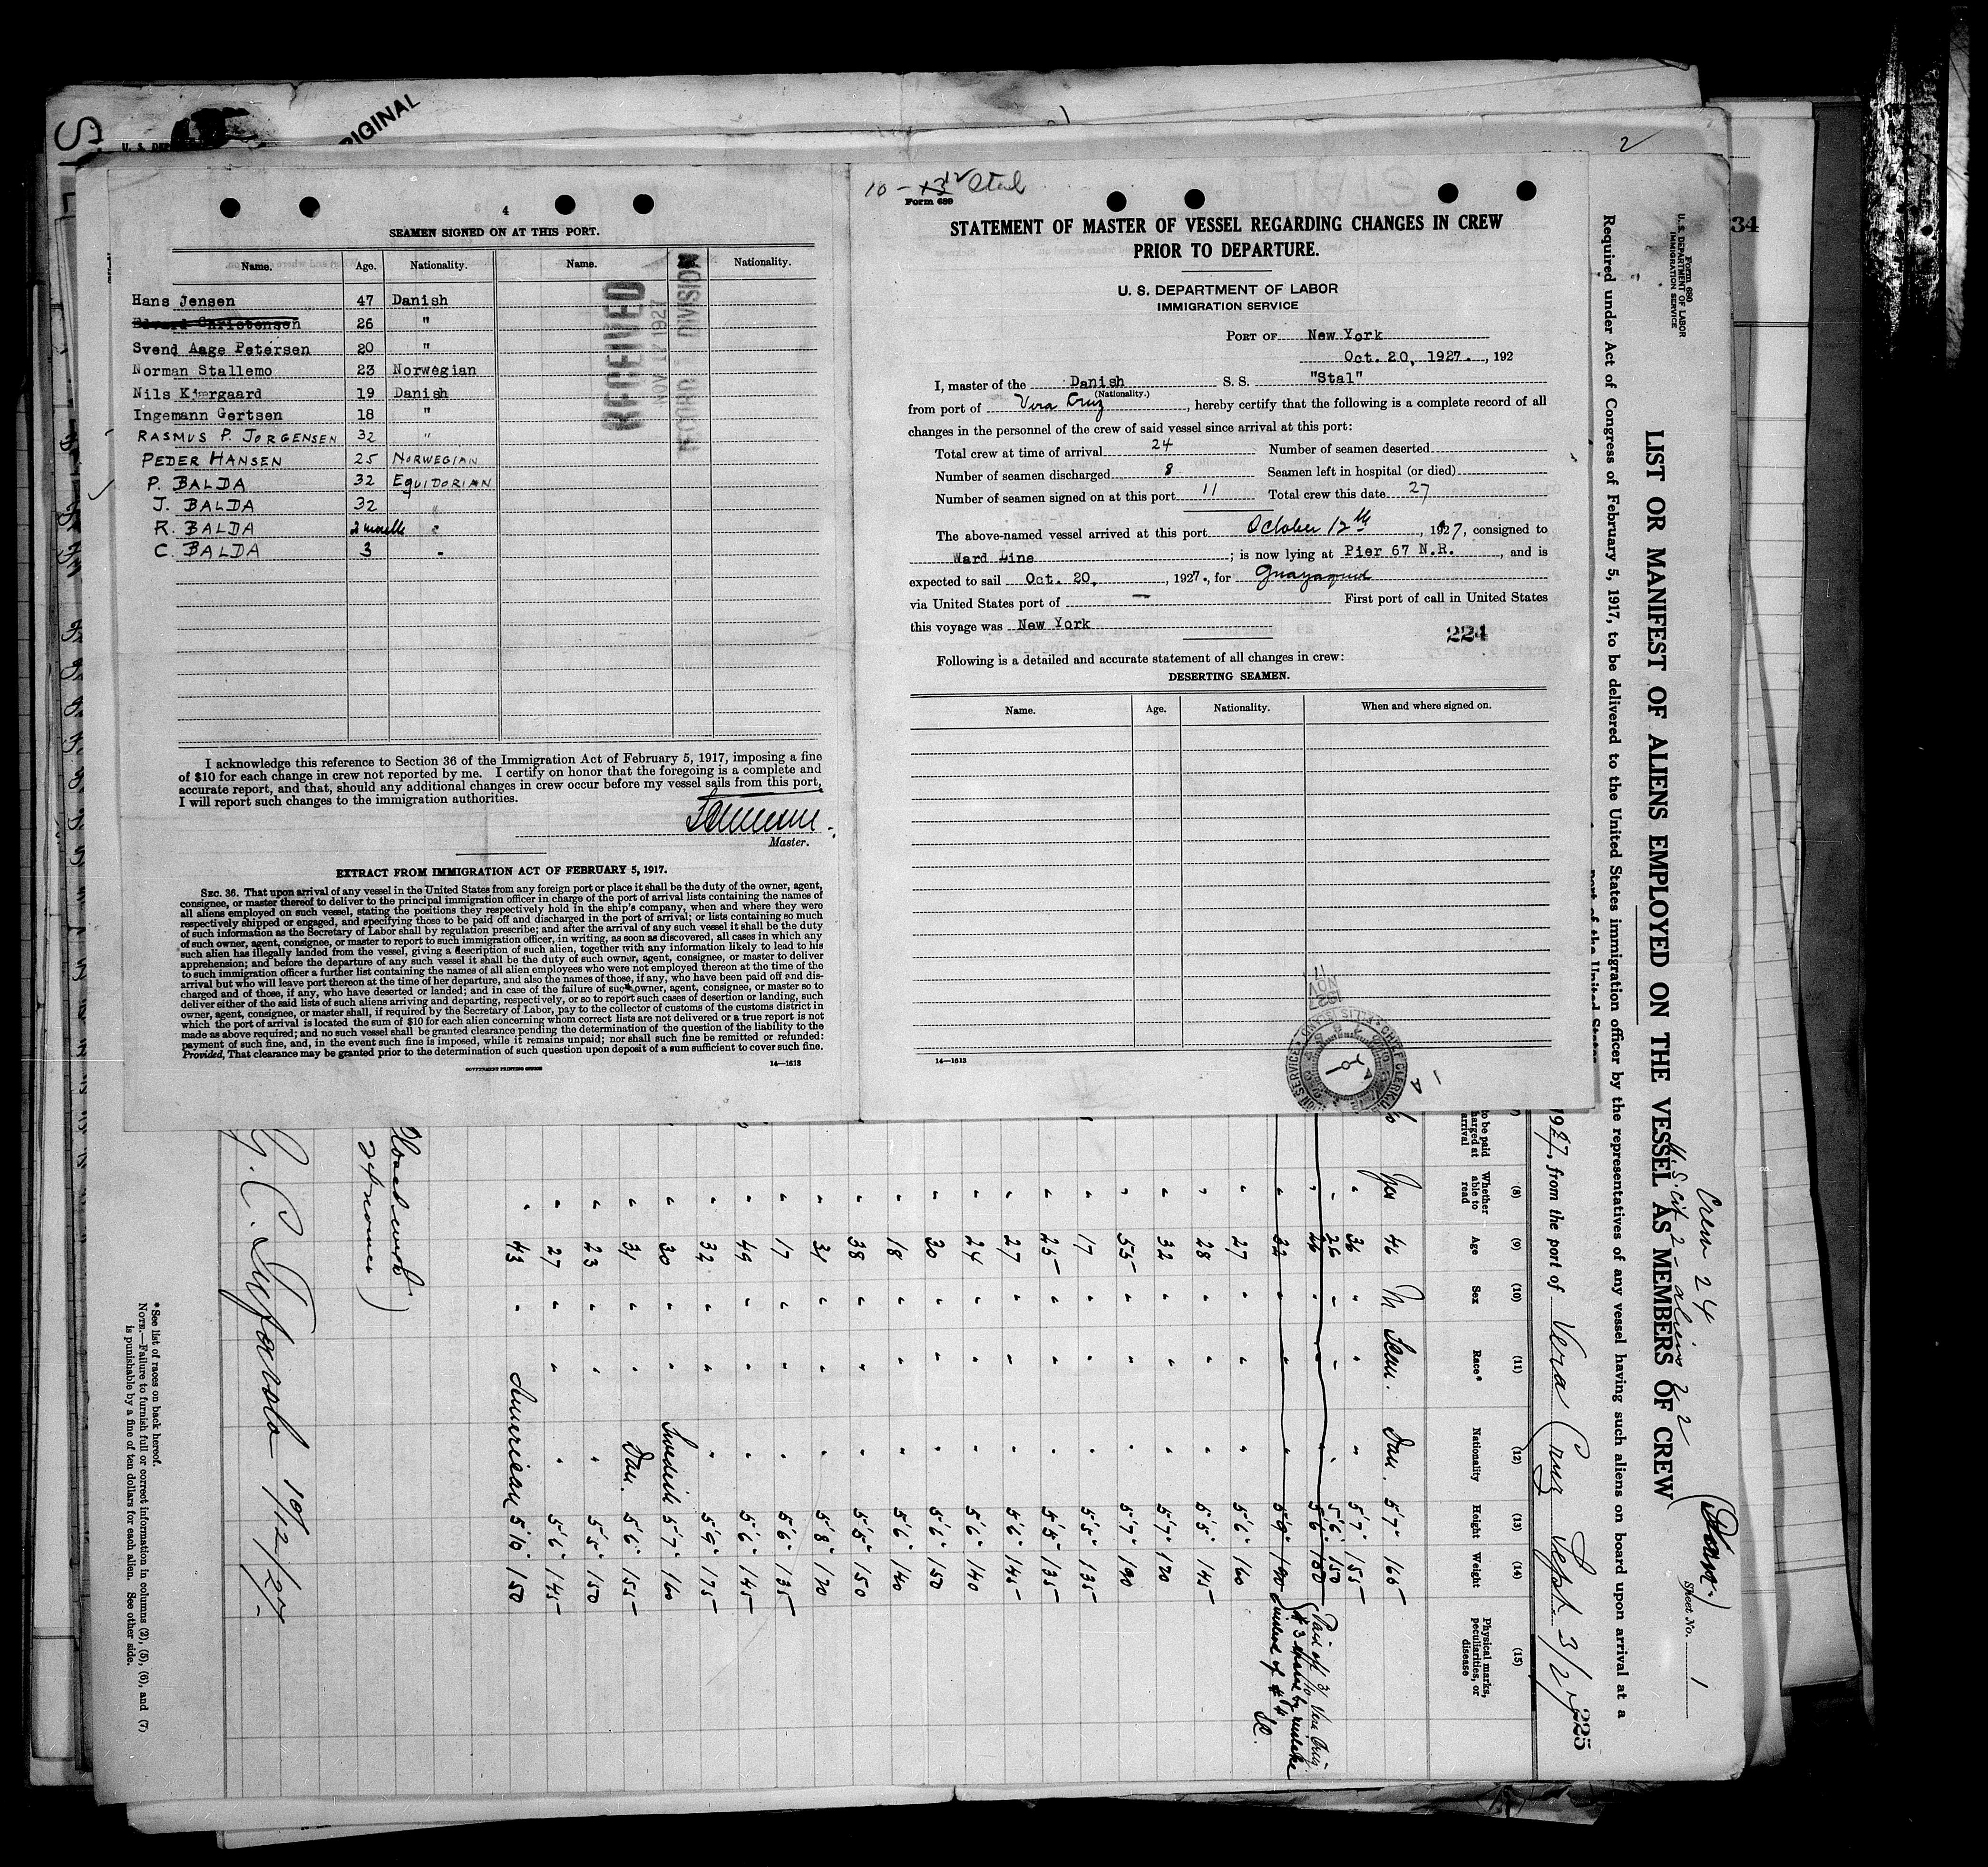 ORIGINAL
U. S. DEP
4
SEAMEN SIGNED ON AT THIS PORT.
Name. Age. Nationality. Name. Age. Nationality.
Hans Jensen 47 Danish
Edvard Christensen 26 "
Svend Aage Petersen 20 "
Norman Stallemo 23 Norwegian
Nils Kjærgaard 19 Danish
Ingemann Gertsen 18 "
RASMUS P. JORGENSEN 32 "
PEDER HANSEN 25 NORWEGIAN
P. BALDA 32 EQUIDORIAN
J. BALDA 32 "
R. BALDA 2 months "
C. BALDA 3 "
RECEIVED
NOV 17 1927
RECORD DIVISION
I acknowledge this reference to Section 36 of the Immigration Act of February 5, 1917, imposing a fine
of $10 for each change in crew not reported by me. I certify on honor that the foregoing is a complete and
accurate report, and that, should any additional changes in crew occur before my vessel sails from this port,
I will report such changes to the immigration authorities.
Master.
EXTRACT FROM IMMIGRATION ACT OF FEBRUARY 5, 1917.
SEC. 36. That upon arrival of any vessel in the United States from any foreign port or place it shall be the duty of the owner, agent,
consignee, or master thereof to deliver to the principal immigration officer in charge of the port of arrival lists containing the names of
all aliens employed on such vessel, stating the positions they respectively hold in the ship's company, when and where they were
respectively shipped or engaged, and specifying those to be paid off and discharged in the port of arrival; or lists containing so much
of such information as the Secretary of Labor shall by regulation prescribe; and after the arrival of any such vessel it shall be the duty
of such owner, agent, consignee, or master to report to such immigration officer, in writing, as soon as discovered, all cases in which any
such alien has illegally landed from the vessel, giving a description of such alien, together with any information likely to lead to his
apprehension; and before the departure of any such vessel it shall be the duty of such owner, agent, consignee, or master to deliver
to such immigration officer a further list containing the names of all alien employees who were not employed thereon at the time of the
arrival but who will leave port thereon at the time of her departure, and also the names of those, if any, who have been paid off and dis-
charged and of those, if any, who have deserted or landed; and in case of the failure of such owner, agent, consignee, or master so to
deliver either of the said lists of such aliens arriving and departing, respectively, or so to report such cases of desertion or landing, such
owner, agent, consignee, or master shall, if required by the Secretary of Labor, pay to the collector of customs of the customs district in
which the port of arrival is located the sum of $10 for each alien concerning whom correct lists are not delivered or a true report is not
made as above required; and no such vessel shall be granted clearance pending the determination of the question of the liability to the
payment of such fine, and, in the event such fine is imposed, while it remains unpaid; nor shall such fine be remitted or refunded:
Provided, That clearance may be granted prior to the determination of such question upon deposit of a sum sufficient to cover such fine.
GOVERNMENT PRINTING OFFICE 14—1613
10 - 13 12 Stal
Form 689
STATEMENT OF MASTER OF VESSEL REGARDING CHANGES IN CREW
PRIOR TO DEPARTURE.
U. S. DEPARTMENT OF LABOR
IMMIGRATION SERVICE
PORT OF New York
Oct. 20, 1927. , 192
I, master of the Danish S. S. "Stal"
(Nationality.)
from port of Vera Cruz , hereby certify that the following is a complete record of all
changes in the personnel of the crew of said vessel since arrival at this port:
Total crew at time of arrival 24 Number of seamen deserted
Number of seamen discharged 8 Seamen left in hospital (or died)
Number of seamen signed on at this port 11 Total crew this date 27
The above-named vessel arrived at this port October 12th , 1927, consigned to
Ward Line ; is now lying at Pier 67 N.R. , and is
expected to sail Oct. 20, , 1927., for Guayaquil
via United States port of — First port of call in United States
this voyage was New York
224
Following is a detailed and accurate statement of all changes in crew:
DESERTING SEAMEN.
Name. Age. Nationality. When and where signed on.
14—1613
17 NOV 1927
CHIEF CLERK
2
34
Form 680
U. S. DEPARTMENT OF LABOR
IMMIGRATION SERVICE
Crew 24
U.S. cit 2 - aliens 22
Sheet No. 1
LIST OR MANIFEST OF ALIENS EMPLOYED ON THE VESSEL AS MEMBERS OF CREW
Required under Act of Congress of February 5, 1917, to be delivered to the United States immigration officer by the representatives of any vessel having such aliens on board upon arrival at a
port of the United States
1927, from the port of Vera Cruz Sept. 3/27
225
to be paid
harged at
arrival
(8) (9) (10) (11) (12) (13) (14) (15)
Whether able to read Age Sex Race* Nationality Height Weight Physical marks, peculiarities, or disease
Yes 46 M Scan. Dan. 5'7" 165
" 36 " " " 5'7" 155
" 26 " " " 5'6" 150
" 26 " " " 5'6" 150
" 32 " " " 5'9" 190
Paid off 3/10 Vera Cruz
# 3 erased by mistake
instead of #4
" 27 " " " 5'6" 160
" 28 " " " 5'5" 145
" 32 " " " 5'7" 170
" 53 " " " 5'7" 190
" 17 " " " 5'5" 135
" 25 " " " 5'5" 135
" 27 " " " 5'6" 145
" 24 " " " 5'6" 140
" 20 " " " 5'6" 150
" 18 " " " 5'6" 140
" 38 " " " 5'5" 150
" 31 " " " 5'8" 170
" 17 " " " 5'6" 135
" 49 " " " 5'6" 145
" 32 " " " 5'9" 175
" 30 " " Swedish 5'7" 160
" 31 " " Dan. 5'6" 155
" 23 " " " 5'5" 150
" 27 " " " 5'6" 145
" 43 " American 5'10" 150
10/12/27
*See list of races on back hereof.
NOTE.—Failure to furnish full or correct information in columns (2), (5), (6), and (7)
is punishable by a fine of ten dollars for each alien. See other side.